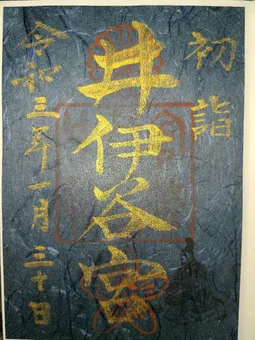 初詣
井伊谷宮
令和三年一月三十日